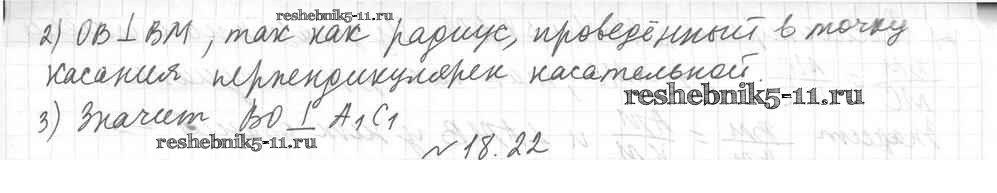 reshebnik5-11.ru
2) OB ⊥ BM, так как радиус, проведённый в точку
касания перпендикулярен касательной.
reshebnik5-11.ru
3) Значит BO ⊥ A₁C₁
reshebnik5-11.ru
№ 18.22